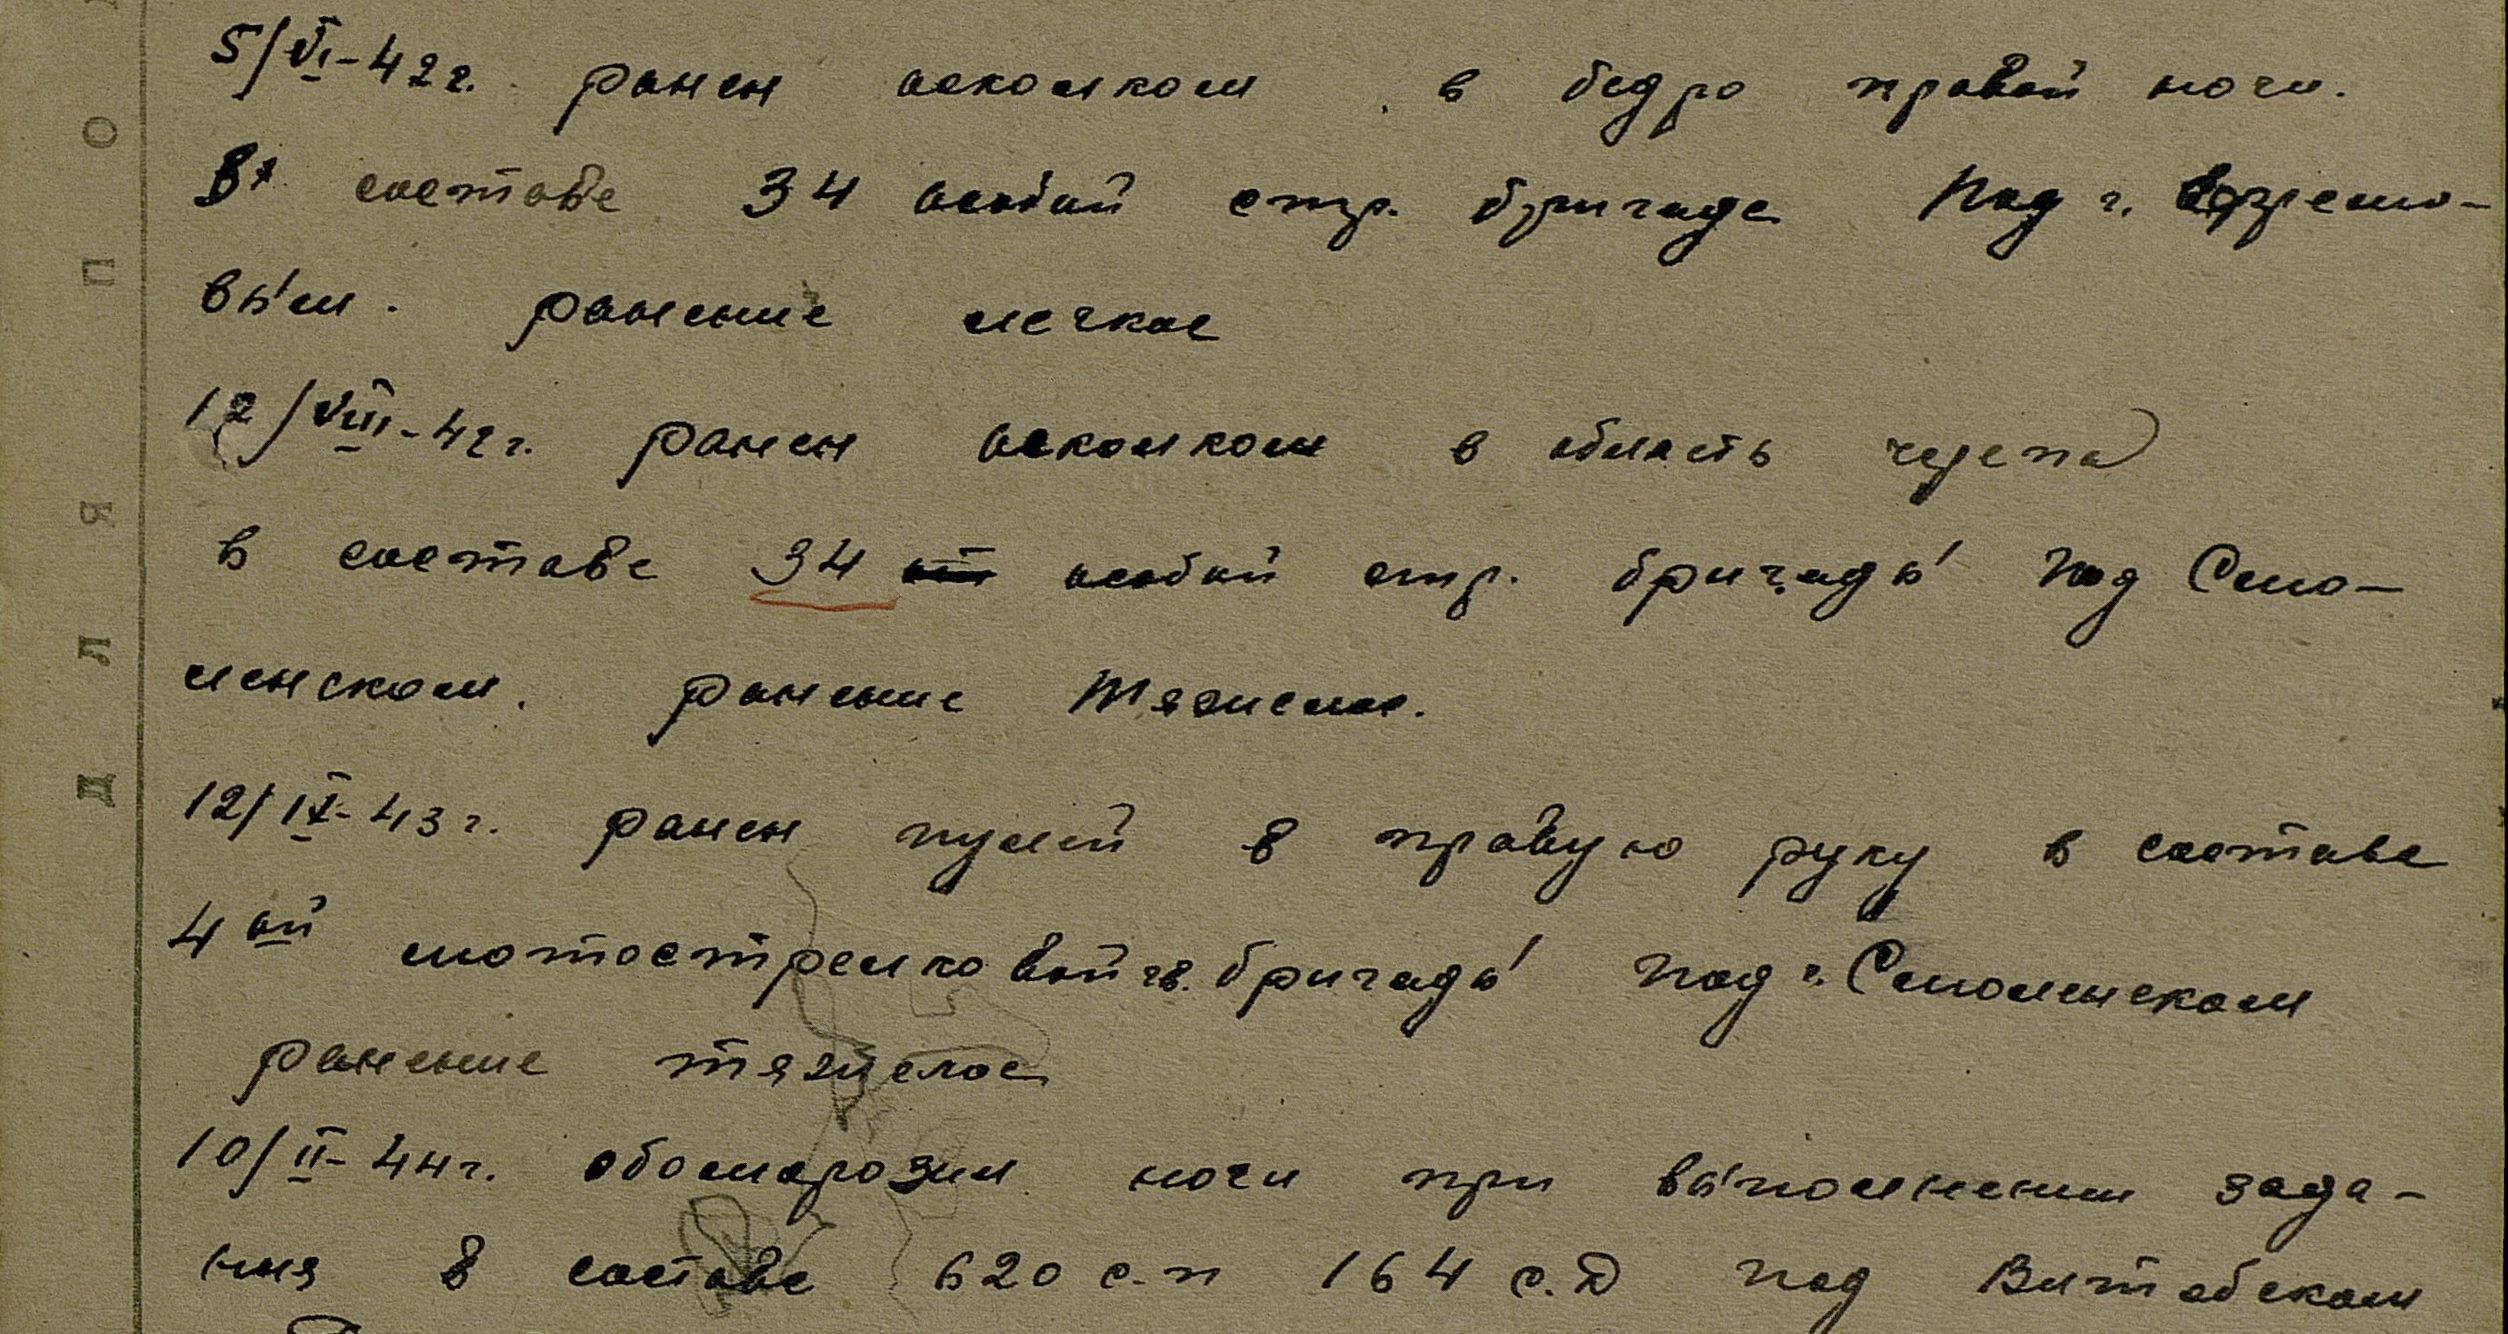 5/VI-42г. ранен осколком в бедро правой ноги.
В составе 34 особой стр. бригаде Под г. Ефремо-
вым. ранение легкое
12/VIII-42г. ранен осколком в область черепа
в составе 34 особой стр. бригады под Смо-
ленском. ранение тяжелое.
12/IX-43г. ранен пулей в правую руку в составе
4ой мотострелковой гв. бригады под г. Смоленском
ранение тяжелое
10/II-44г. обоморозил ноги при выполнении зада-
ния в составе 620 с.п 164 с.д под Витебском
ДЛЯ ПО